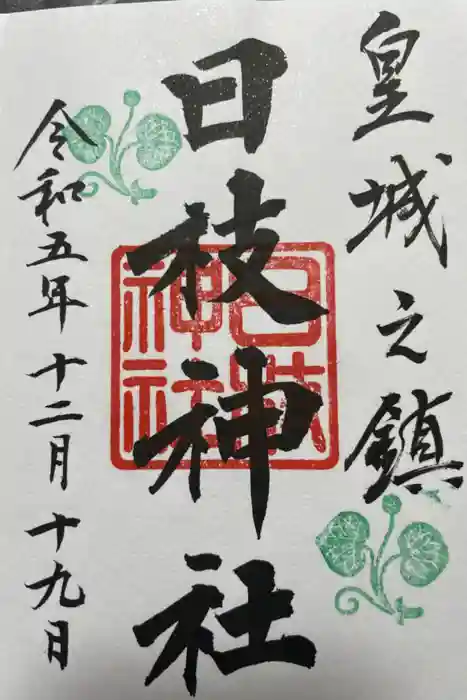 皇城之鎮
日枝神社
令和五年十二月十九日